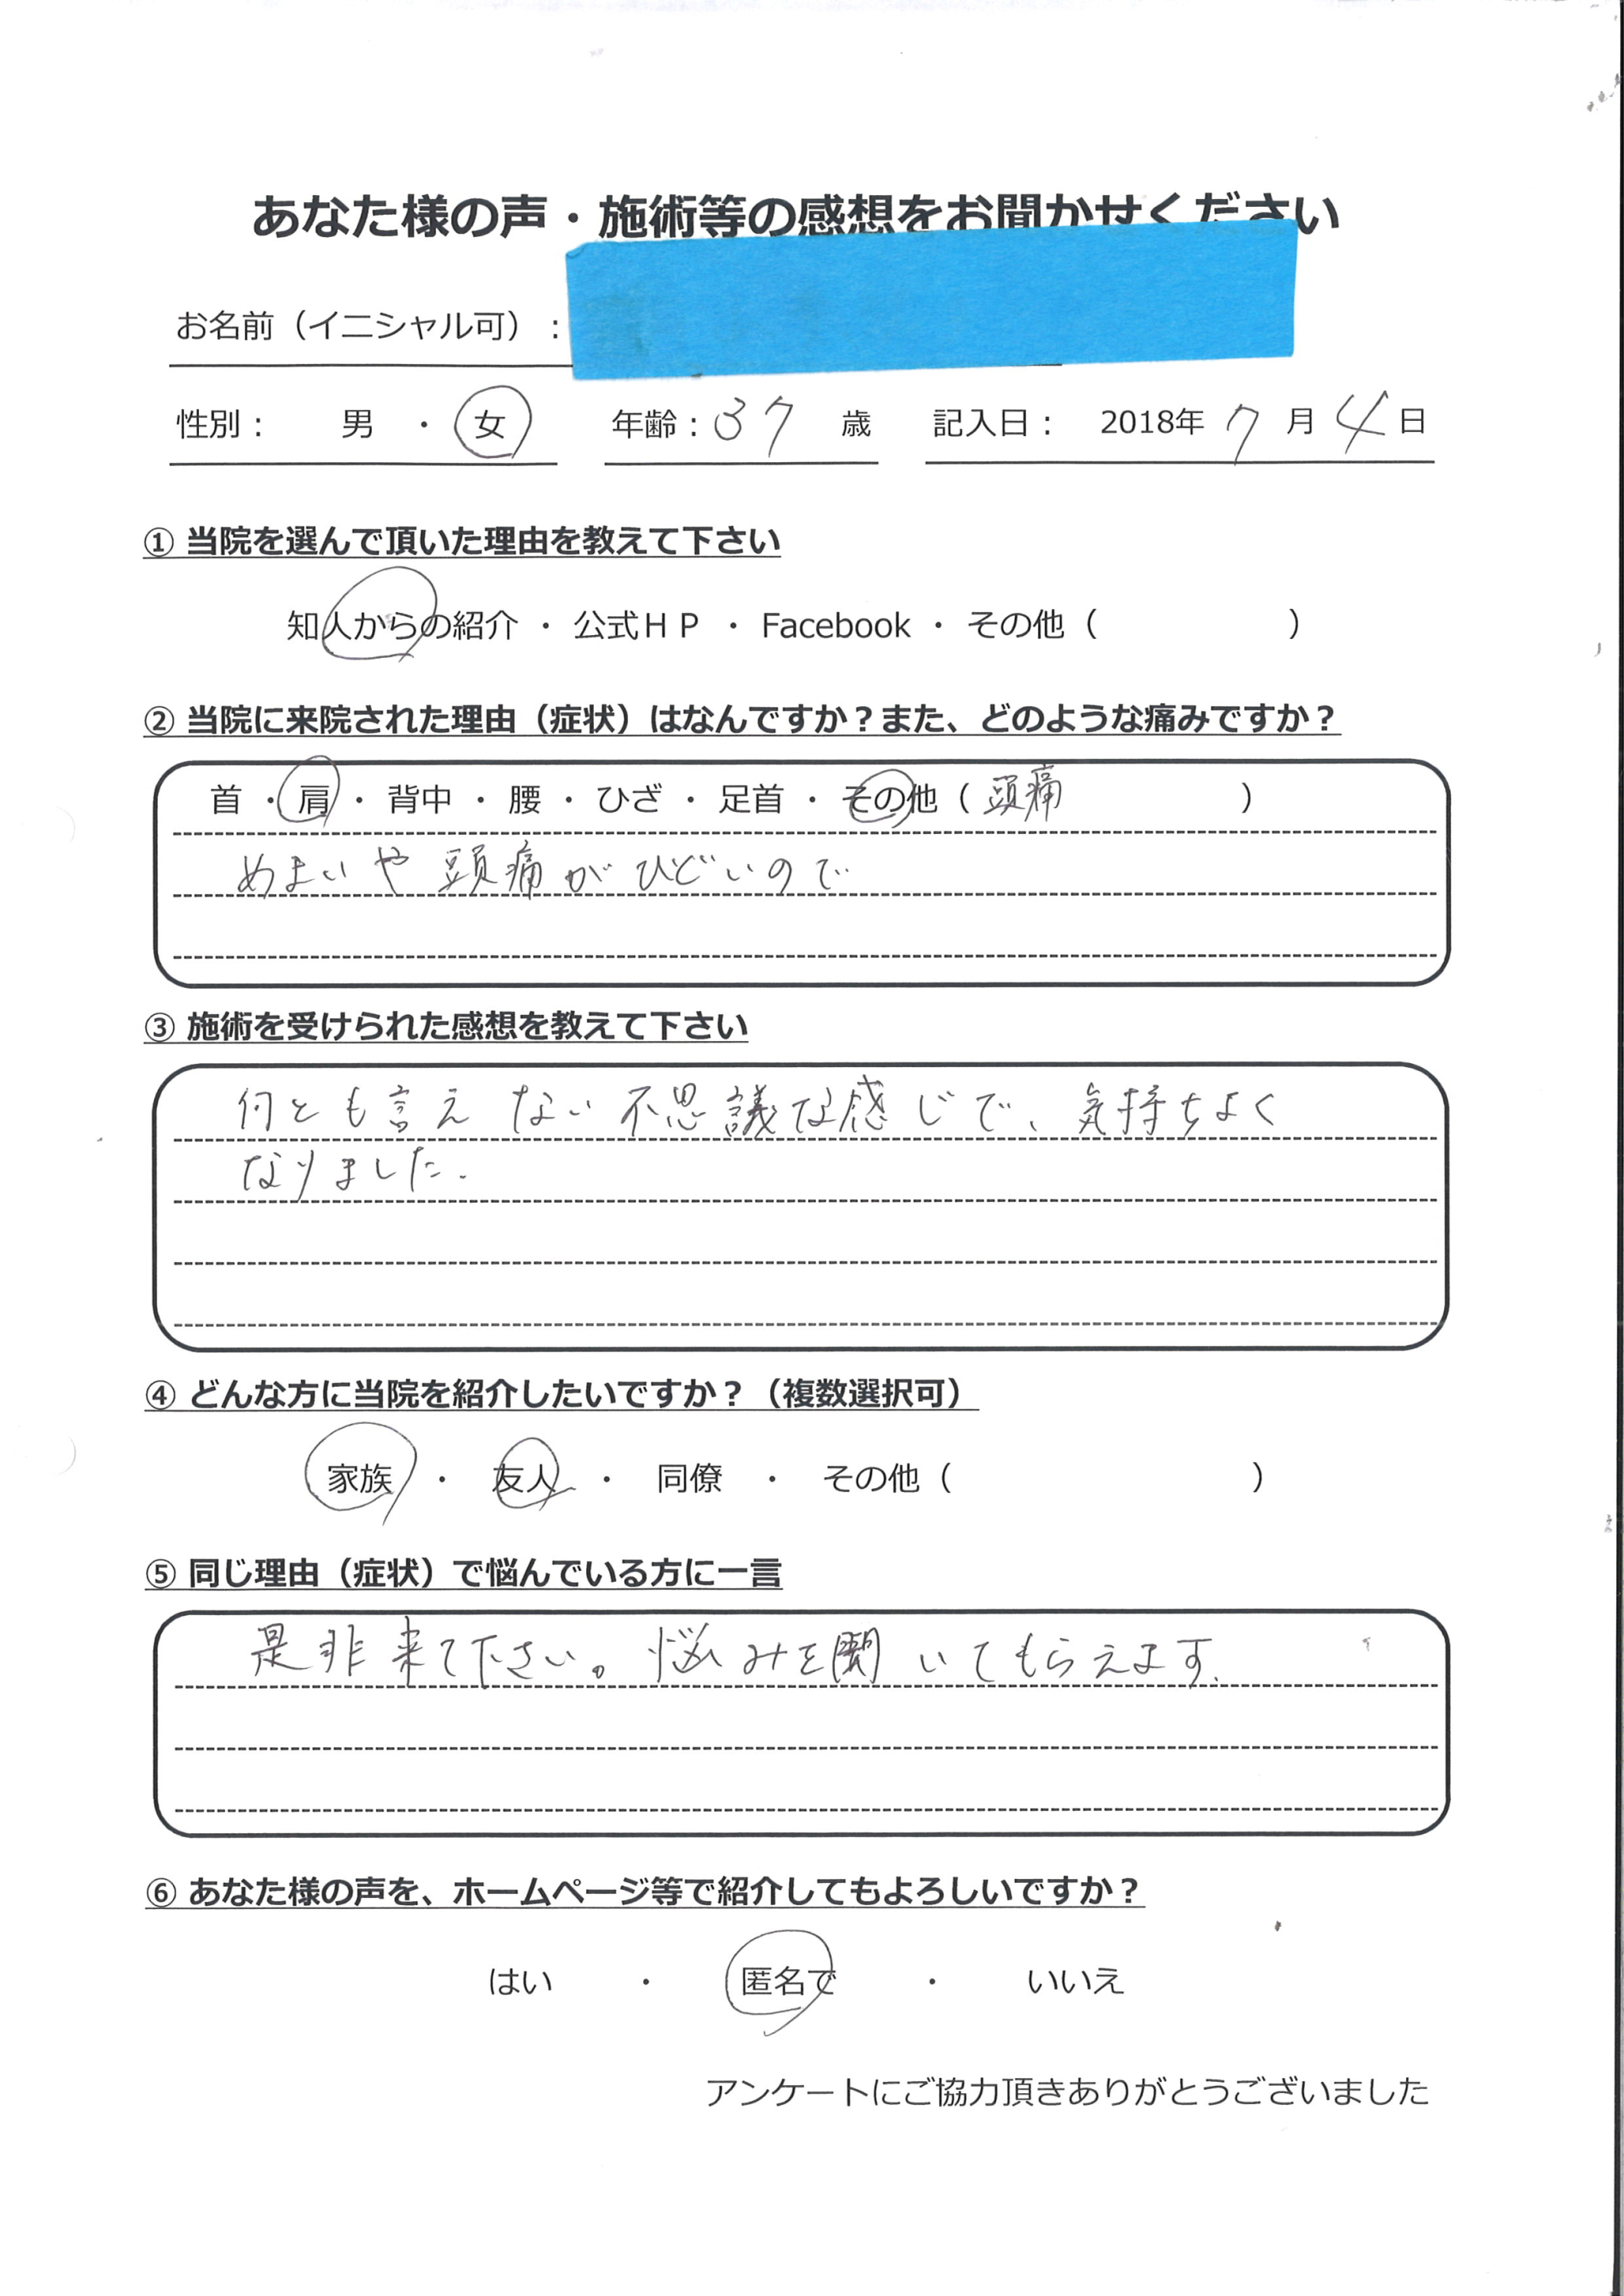 あなた様の声・施術等の感想をお聞かせください
お名前（イニシャル可）：
性別： 男 ・ 女 年齢：37 歳 記入日： 2018年 7 月 4 日
① 当院を選んで頂いた理由を教えて下さい
知人からの紹介 ・ 公式ＨＰ ・ Facebook ・ その他（ ）
② 当院に来院された理由（症状）はなんですか？また、どのような痛みですか？
首 ・ 肩 ・ 背中 ・ 腰 ・ ひざ ・ 足首 ・ その他（ 頭痛 ）
めまいや頭痛がひどいので
③ 施術を受けられた感想を教えて下さい
何とも言えない不思議な感じで、気持ちよく
なりました.
④ どんな方に当院を紹介したいですか？（複数選択可）
家族 ・ 友人 ・ 同僚 ・ その他（ ）
⑤ 同じ理由（症状）で悩んでいる方に一言
是非来て下さい。悩みを聞いてもらえます.
⑥ あなた様の声を、ホームページ等で紹介してもよろしいですか？
はい ・ 匿名で ・ いいえ
アンケートにご協力頂きありがとうございました